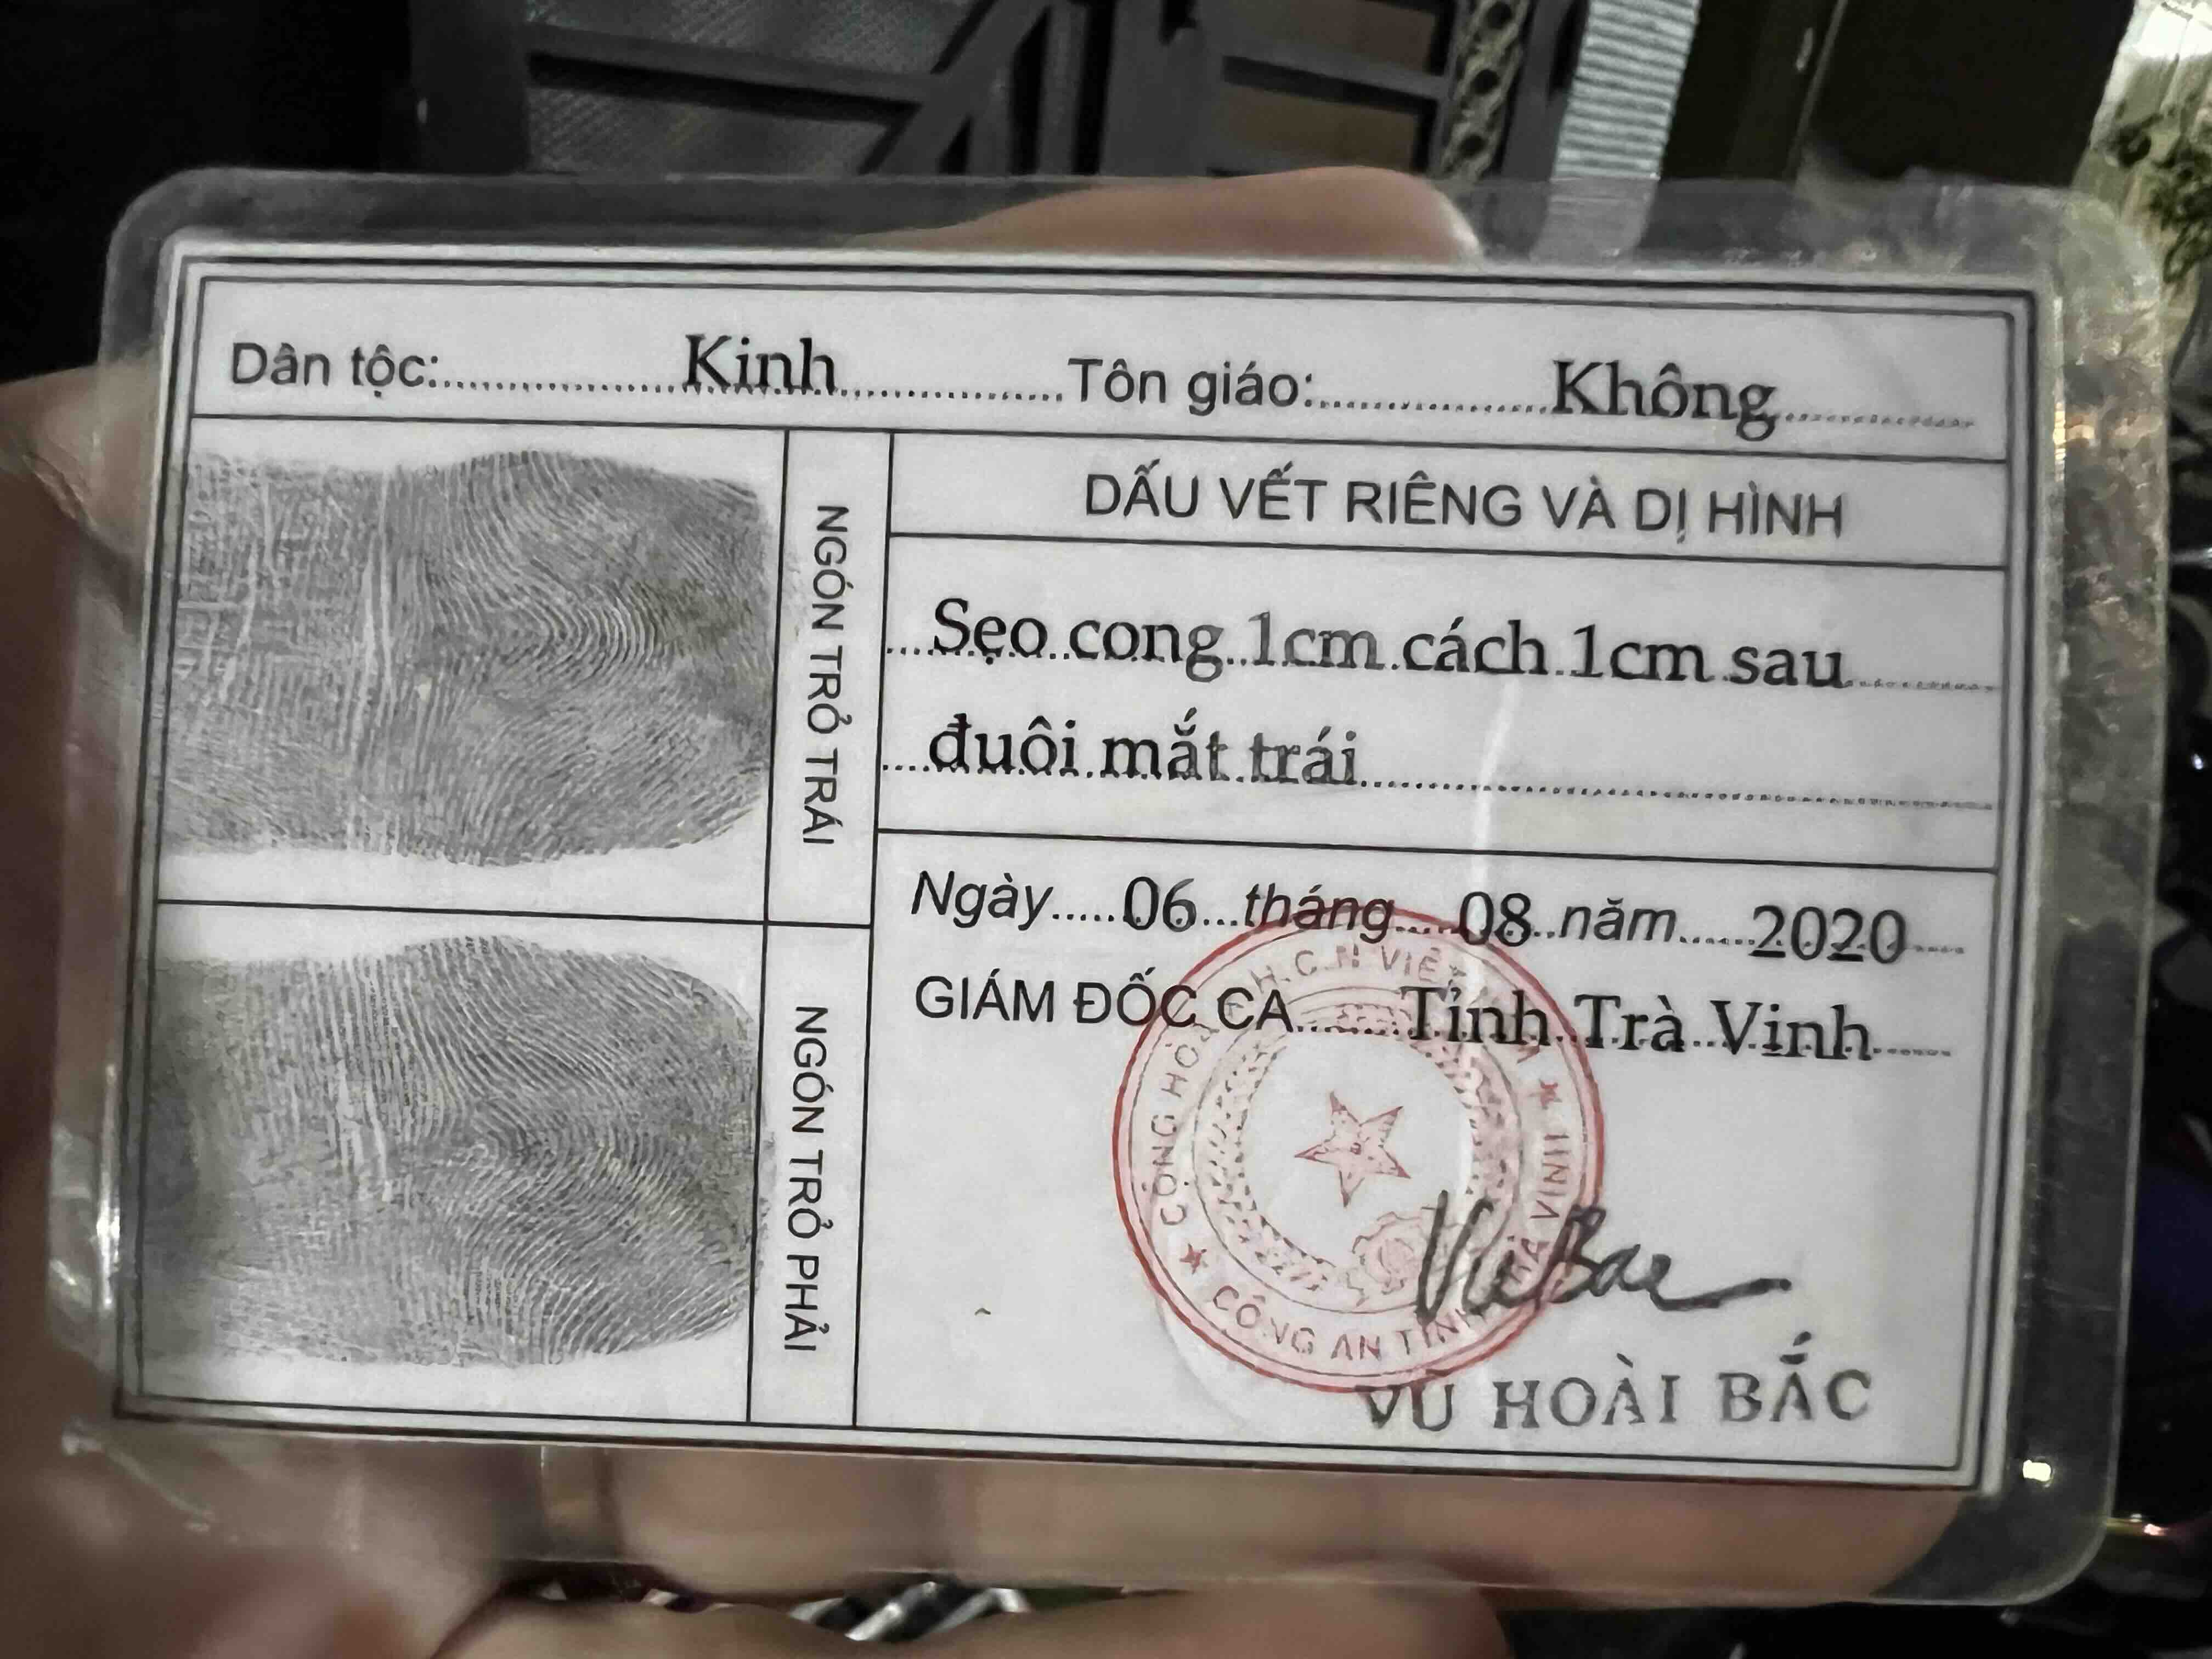 Dân tộc: Kinh Tôn giáo: Không
NGÓN TRỎ TRÁI
DẤU VẾT RIÊNG VÀ DỊ HÌNH
Sẹo cong 1cm cách 1cm sau
đuôi mắt trái
NGÓN TRỎ PHẢI
Ngày 06 tháng 08 năm 2020
GIÁM ĐỐC CA Tỉnh Trà Vinh
CÔNG AN TỈNH TRÀ VINH
Vũ Bắc
VŨ HOÀI BẮC